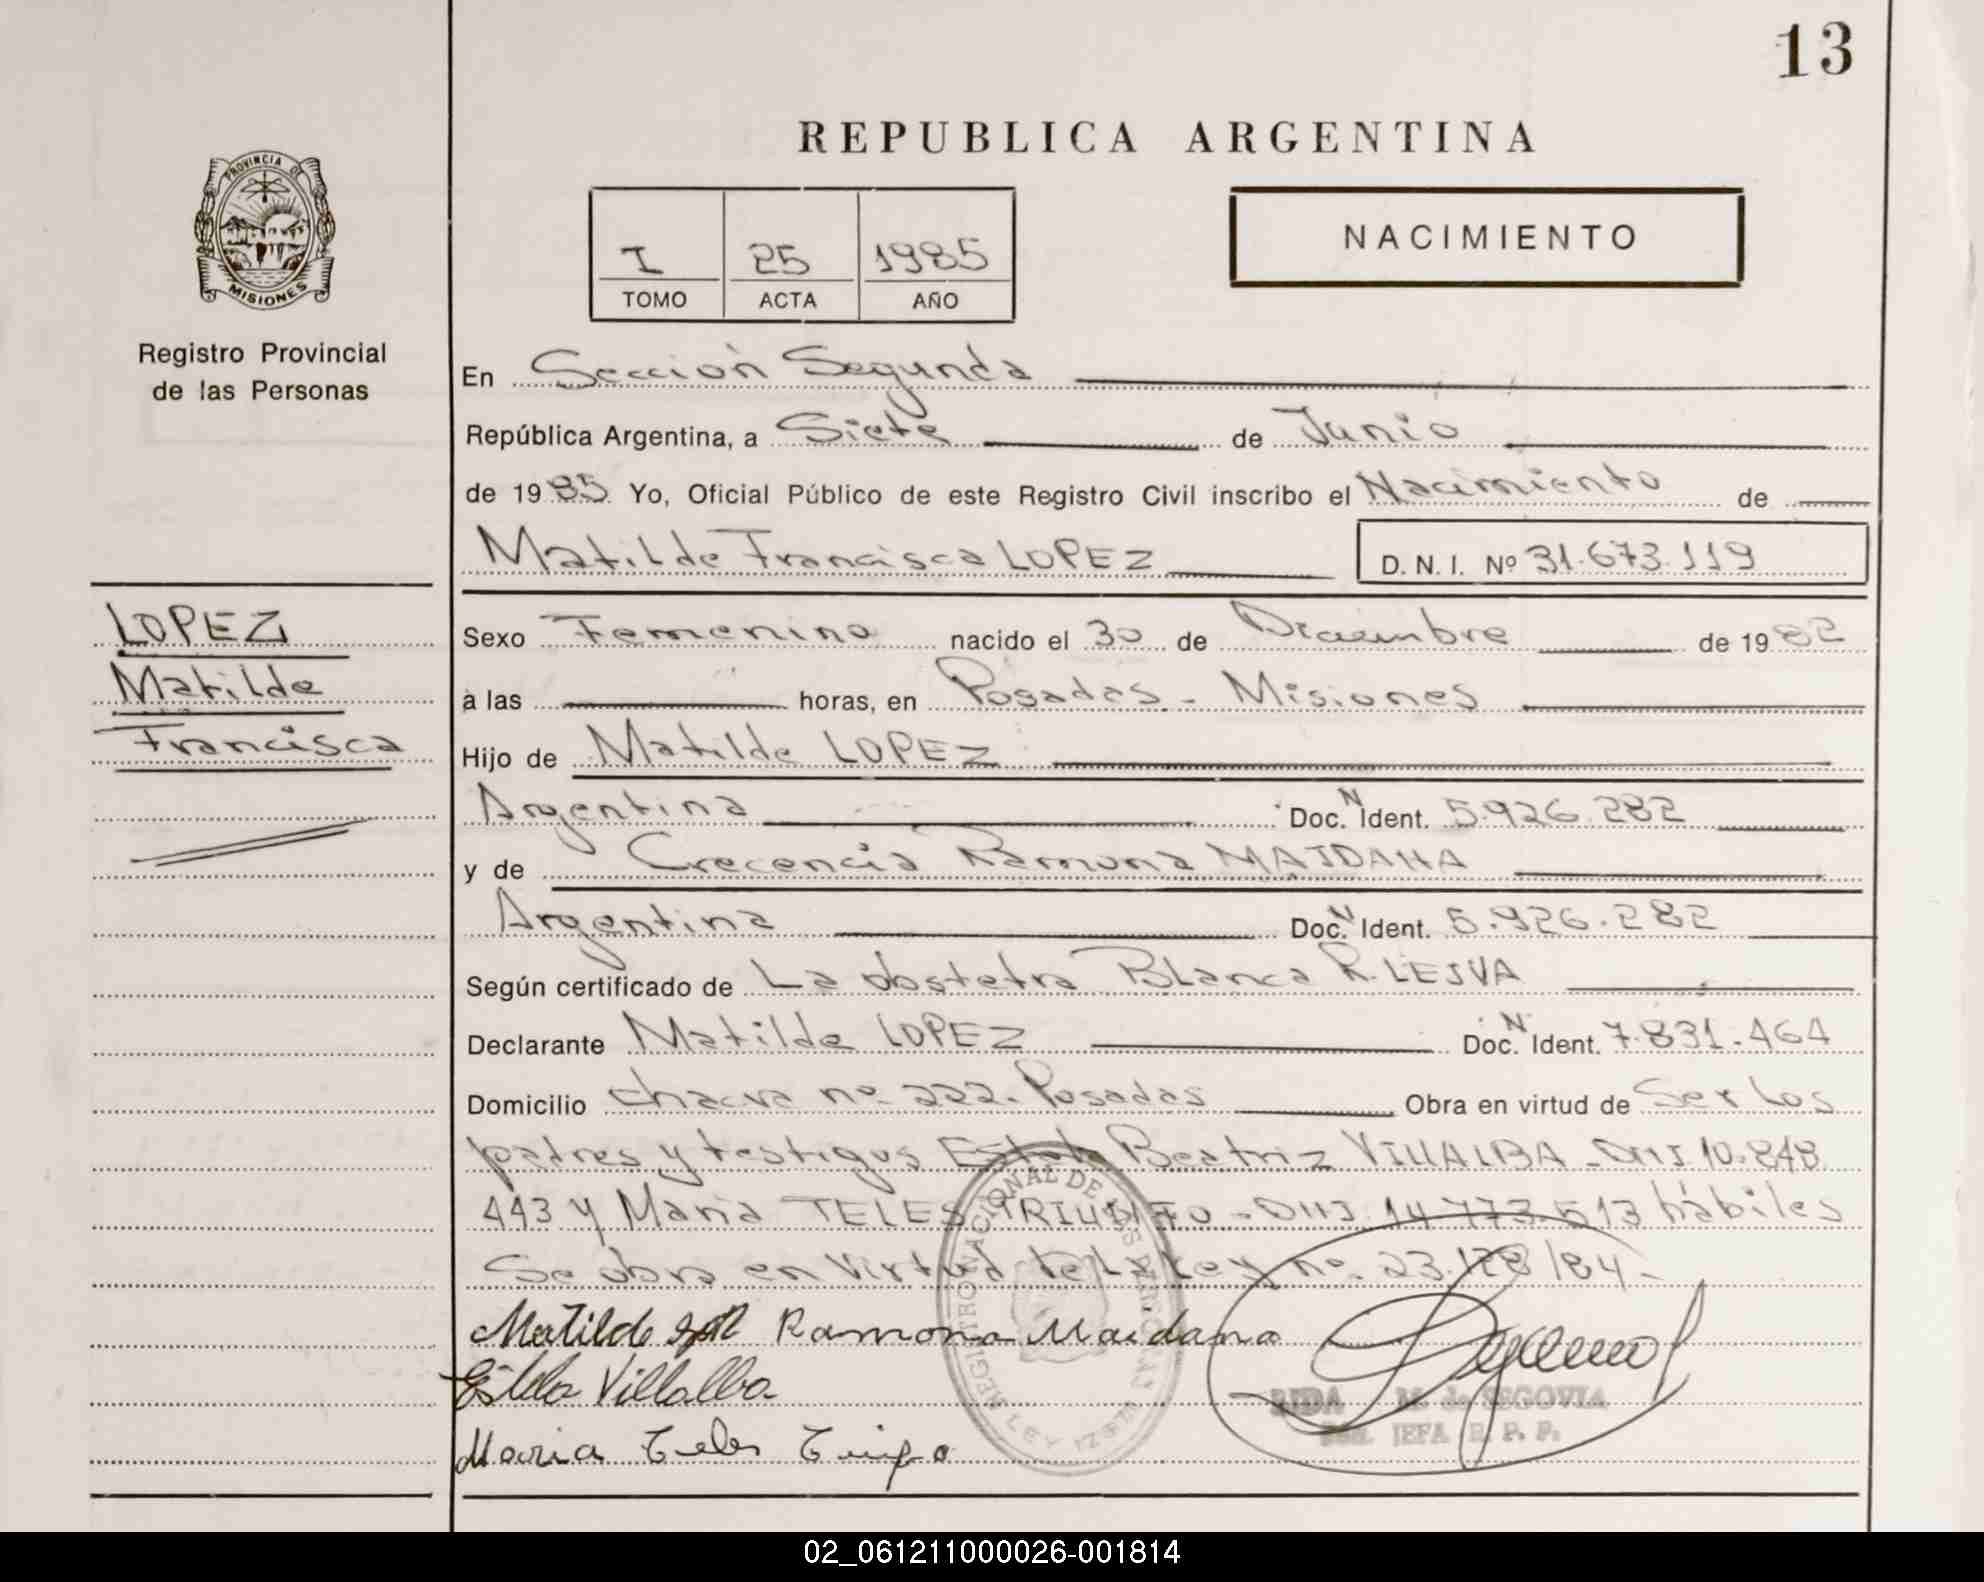 13
REPUBLICA ARGENTINA
PROVINCIA DE
MISIONES
Registro Provincial
de las Personas
I 25 1985
TOMO ACTA AÑO
NACIMIENTO
En Sección Segunda
República Argentina, a Siete de Junio
de 1985 Yo, Oficial Público de este Registro Civil inscribo el Nacimiento de
Matilde Francisca LOPEZ D. N. I. Nº 31.673.119
LOPEZ
Matilde
Francisca
Sexo Femenino nacido el 30 de Diciembre de 1982
à las horas, en Posadas - Misiones
Hijo de Matilde LOPEZ
Argentina Doc. N Ident. 5.926.282
y de Crecencia Ramona MAIDANA
Argentina Doc. N Ident. 5.926.282
Según certificado de La obstetra Blanca R. LEIVA
Declarante Matilde LOPEZ Doc. N Ident. 7.831.464
Domicilio chacra nº 222. Posadas Obra en virtud de Ser Los
padres y testigos Estela Beatriz VILLALBA - DNI 10.848
443 y Maria TELES - DNI 14.773.513 hábiles
Se obra en Virtud de La Ley nº 23.128/84-
Matilde Ramona Maidana
Estela Villalba
Maria Teles
REGISTRO NACIONAL DE LAS PERSONAS
LEY
M. de SEGOVIA
JEFA R. P. P.
02_061211000026-001814